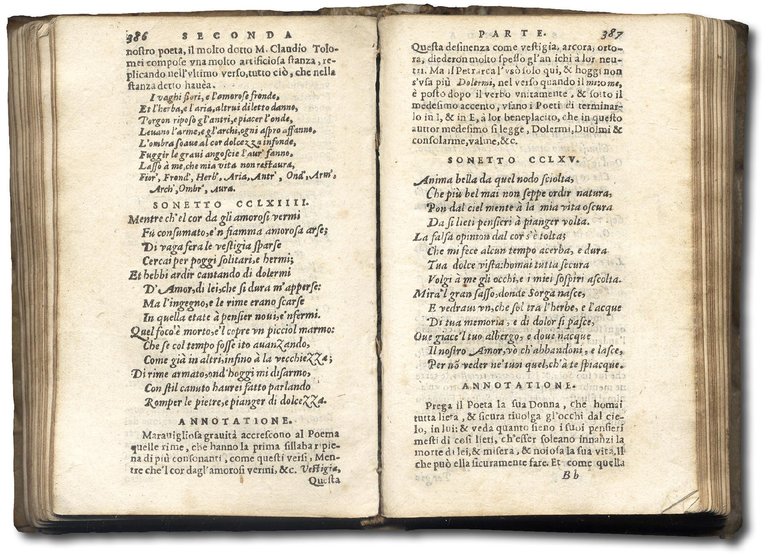 386 SECONDA
nostro poeta, il molto dotto M. Claudio Tolo-
mei compose vna molto artificiosa stanza, re-
plicando nell'vltimo verso, tutto ciò, che nella
stanza detto hauea.
I vaghi fiori, e l'amorose fronde,
Et l'herba, e l'aria, altrui diletto danno,
Porgon riposo gl'antri, e piacer l'onde,
Leuano l'arme, e gl'archi, ogni aspro affanno.
L'ombra soaue al cor dolcezza infonde,
Fuggir le graui angoscie l'aur' fanno.
Lasso à me, che mia vita non restaura,
Fior', Frond', Herb', Aria, Antr', Ond', Arm',
Arch', Ombr', Aura.
SONETTO CCLXIIII.
Mentre ch'el cor da gli amorosi vermi
Fù consumato, e'n fiamma amorosa arse;
Di vaga fera le vestigia sparse
Cercai per poggi solitari, e hermi;
Et hebbi ardir cantando di dolermi
D'Amor, di lei, che si dura m'apperse:
Ma l'ingegno, e le rime erano scarse
In quella etate à pensier noui, e'nfermi.
Quel foco è morto, e'l copre vn picciol marmo:
Che se col tempo fosse ito auanzando,
Come già in altri, infino à la vecchiezza;
Di rime armato, ond'hoggi mi disarmo,
Con stil canuto haurei fatto parlando
Romper le pietre, e pianger di dolcezza.
ANNOTATIONE.
Marauigliosa grauità accrescono al Poema
quelle rime, che hanno la prima sillaba ripie-
na di più consonanti, come questi versi, Men-
tre che'l cor dagl'amorosi vermi, &c. Vestigia,
Questa
PARTE. 387
Questa desinenza come vestigia, arcora, orto-
ra, diederon molto spesso gl'an ichi à lor neu-
tri. Ma il Petrarca l'vsò solo qui, & hoggi non
s'vsa più Dolermi, nel verso quando il pronome,
è posto dopo il verbo vnitamente, & sotto il
medesimo accento, vsano i Poeti di terminar-
lo in I, & in E, à lor beneplacito, che in questo
auttor medesimo si legge, Dolermi, Duolmi &
consolarme, valme, &c.
SONETTO CCLXV.
Anima bella da quel nodo sciolta,
Che più bel mai non seppe ordir natura,
Pon dal ciel mente à la mia vita oscura
Da si lieti pensieri à pianger volta.
La falsa opinion dal cor s'è tolta;
Che mi fece alcun tempo acerba, e dura
Tua dolce vista: homai tutta secura
Volgi à me gli occhi, e i miei sospiri ascolta.
Mira'l gran sasso, donde Sorga nasce,
E vedraui vn, che sol tra l'herbe, e l'acque
Di tua memoria, e di dolor si pasce,
Oue giace'l tuo albergo, e doue nacque
Il nostro Amor, vò ch'abbandoni, e lasce,
Per nõ veder ne'tuoi quel, ch'à te spiacque.
ANNOTATIONE.
Prega il Poeta la sua Donna, che homai
tutta lieta, & sicura riuolga gl'occhi dal cie-
lo, in lui: & veda quanto sieno i suoi pensieri
mesti di così lieti, ch'esser soleano innanzi la
morte di lei, & misera, & noiosa la sua vita. Il
che può ella sicuramente fare. Et come quella
Bb